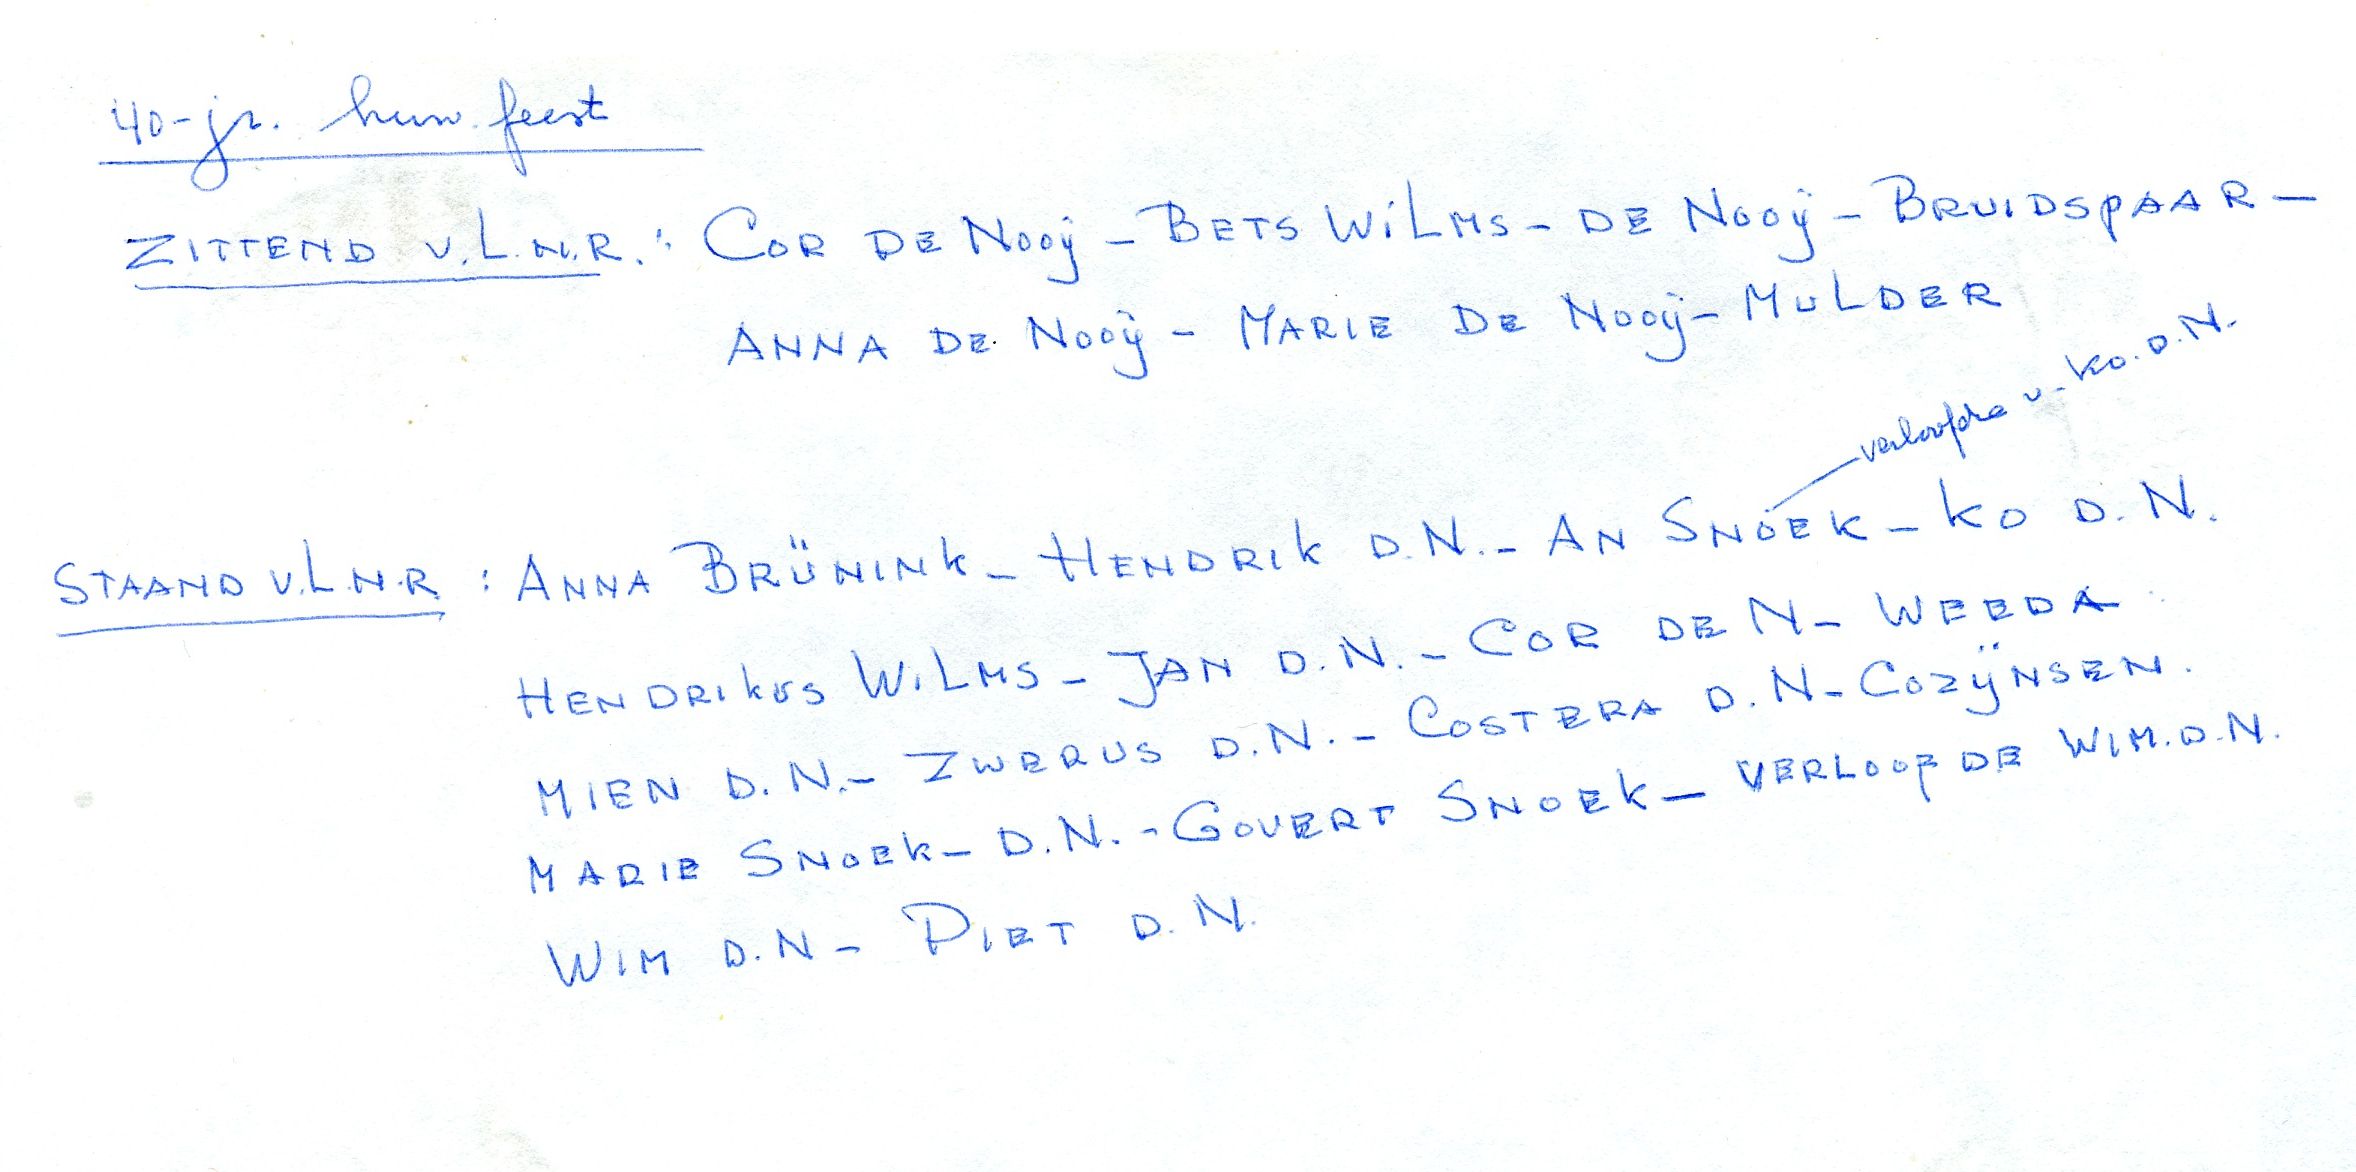 40-jr. huw. feest
ZITTEND v.L.N.R.: COR DE Nooÿ - BETS WiLMS - DE Nooÿ - BRUIDSPAAR -
ANNA DE Nooÿ - MARIE DE Nooÿ - MULDER
verloofde v. KO. D.N.
STAAND v.L.N.R.: ANNA BRÜNINK - HENDRIK D.N. - AN SNOEK - KO D.N.
HENDRIKUS WiLMS - JAN D.N. - COR DE N - WEEDA
MIEN D.N. - ZWERUS D.N. - COSTERA D.N - COZŸNSEN.
MARIE SNOEK - D.N. - GOVERT SNOEK - VERLOOFDE WIM. D.N.
WIM D.N - PIET D.N.